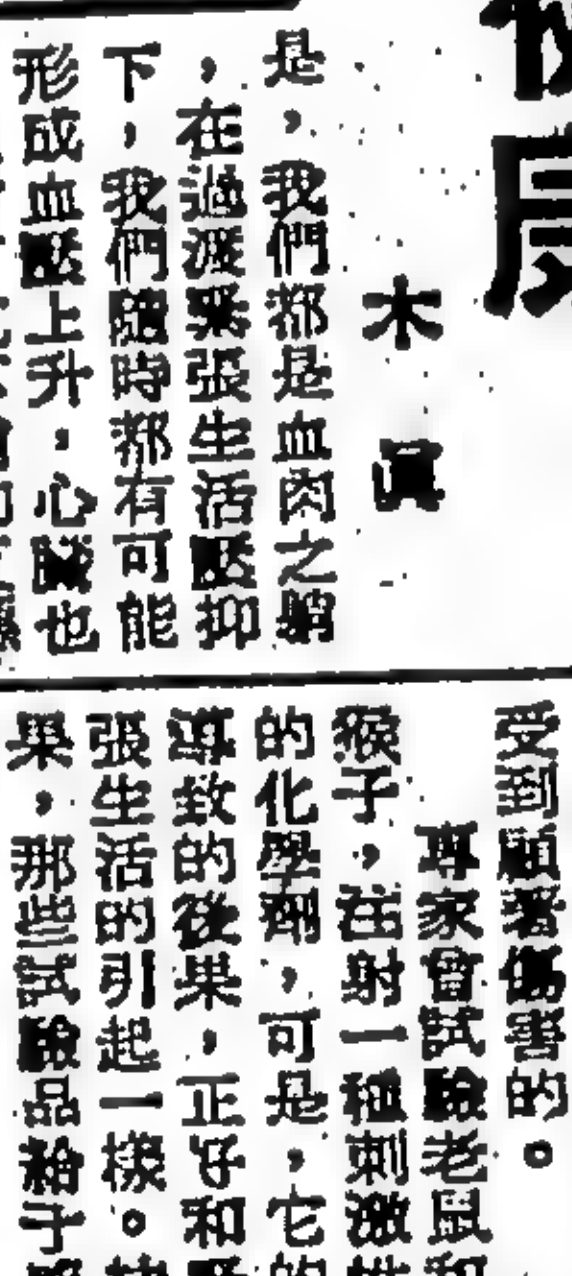 木眞
是,我們都是血肉之軀
,在過渡緊張生活壓抑
下,我們隨時都有可能
形成血壓上升,心臟也
受到顯著傷害的。
專家曾試驗老鼠和
猴子,注射一種刺激
的化學劑,可是,它的
導致的後果,正好和
張生活的引起一樣。
果,那些試驗品給予